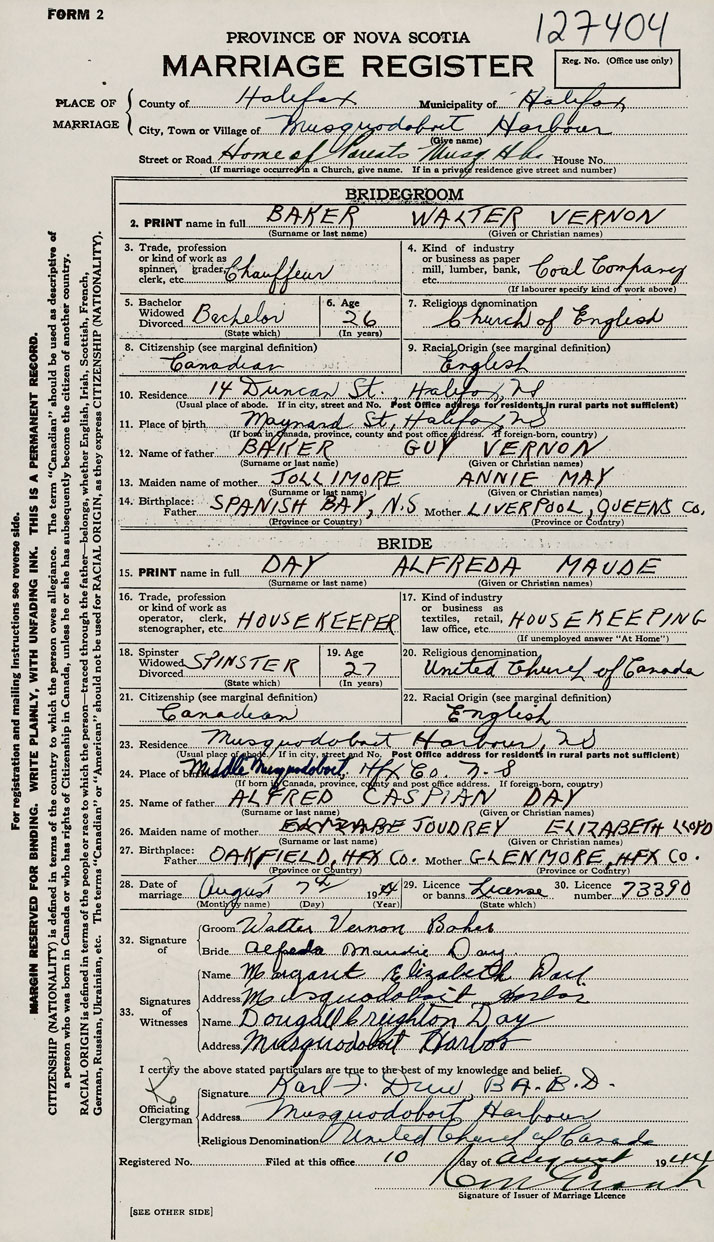 FORM 2
127404
PROVINCE OF NOVA SCOTIA
MARRIAGE REGISTER
Reg. No. (Office use only)
PLACE OF MARRIAGE
County of Halifax Municipality of Halifax
City, Town or Village of Musquodoboit Harbour
(Give name)
Street or Road Home of Parents Musq Hbr House No.
(If marriage occurred in a Church, give name. If in a private residence give street and number)
BRIDEGROOM
2. PRINT name in full BAKER WALTER VERNON
(Surname or last name) (Given or Christian names)
3. Trade, profession or kind of work as spinner, grader, clerk, etc. Chauffeur
4. Kind of industry or business as paper mill, lumber, bank, etc. Coal Company
(If labourer specify kind of work above)
5. Bachelor Widowed Divorced Bachelor
(State which)
6. Age 26
(In years)
7. Religious denomination Church of English
8. Citizenship (see marginal definition) Canadian
9. Racial Origin (see marginal definition) English
10. Residence 14 Duncan St. Halifax, NS
(Usual place of abode. If in city, street and No. Post Office address for residents in rural parts not sufficient)
11. Place of birth Maynard St, Halifax, NS
(If born in Canada, province, county and post office address. If foreign-born, country)
12. Name of father BAKER GUY VERNON
(Surname or last name) (Given or Christian names)
13. Maiden name of mother JOLLIMORE ANNIE MAY
(Surname or last name) (Given or Christian names)
14. Birthplace: Father SPANISH BAY, N.S Mother LIVERPOOL, QUEENS CO.
(Province or Country) (Province or Country)
BRIDE
15. PRINT name in full DAY ALFREDA MAUDE
(Surname or last name) (Given or Christian names)
16. Trade, profession or kind of work as operator, clerk, stenographer, etc. HOUSEKEEPER
17. Kind of industry or business as textiles, retail, law office, etc. HOUSEKEEPING
(If unemployed answer "At Home")
18. Spinster Widowed Divorced SPINSTER
(State which)
19. Age 27
(In years)
20. Religious denomination United Church of Canada
21. Citizenship (see marginal definition) Canadian
22. Racial Origin (see marginal definition) English
23. Residence Musquodoboit Harbour, NS
(Usual place of abode. If in city, street and No. Post Office address for residents in rural parts not sufficient)
24. Place of birth Middle Musquodoboit, Hfx Co. N.S
(If born in Canada, province, county and post office address. If foreign-born, country)
25. Name of father ALFRED CASPIAN DAY
(Surname or last name) (Given or Christian names)
26. Maiden name of mother JOUDREY ELIZABETH LLOYD
(Surname or last name) (Given or Christian names)
27. Birthplace: Father OAKFIELD, HFX CO. Mother GLENMORE, HFX CO.
(Province or Country) (Province or Country)
28. Date of marriage August 7th 1944
(Month by name) (Day) (Year)
29. Licence or banns License
(State which)
30. Licence number 73390
32. Signature of
Groom Walter Vernon Baker
Bride Alfreda Maudie Day
33. Signatures of Witnesses
Name Margaret Elizabeth Day
Address Musquodoboit Harbor
Name Dougall Creighton Day
Address Musquodoboit Harbor
I certify the above stated particulars are true to the best of my knowledge and belief.
Officiating Clergyman
Signature Karl F. Drew, B.A. B.D.
Address Musquodoboit Harbour
Religious Denomination United Church of Canada
Registered No. Filed at this office 10 day of August 1944
Signature of Issuer of Marriage Licence
[SEE OTHER SIDE]
For registration and mailing instructions see reverse side.
MARGIN RESERVED FOR BINDING. WRITE PLAINLY, WITH UNFADING INK. THIS IS A PERMANENT RECORD.
CITIZENSHIP (NATIONALITY) is defined in terms of the country to which the person owes allegiance. The term "Canadian" should be used as descriptive of
a person who was born in Canada or who has rights of Citizenship in Canada, unless he or she has subsequently become the citizen of another country.
RACIAL ORIGIN is defined in terms of the people or race to which the person—traced through the father—belongs, whether English, Irish, Scottish, French,
German, Russian, Ukrainian, etc. The terms "Canadian" or "American" should not be used for RACIAL ORIGIN, as they express CITIZENSHIP (NATIONALITY).